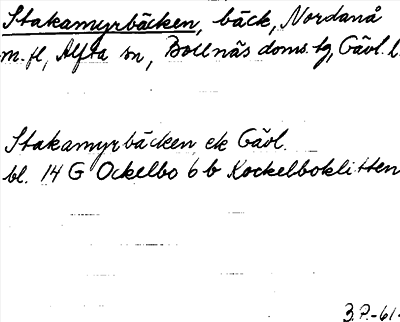 Stakamyrbäcken, bäck, Nordanå
m.fl, Alfta sn, Bollnäs doms. tg, Gävl. l.
Stakamyrbäcken ek Gävl.
bl. 14 G Ockelbo 6 b Kockelboklitten
B.P.-61-